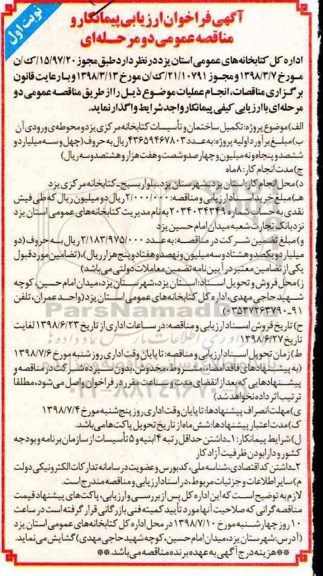 نوبت اول
آگهی فراخوان ارزیابی پیمانکار و
مناقصه عمومی دو مرحله‌ای
اداره کل کتابخانه‌های عمومی استان یزد در نظر دارد طبق مجوز ۱۵/۹۷/۲۰/ک/ن
مورخ ۱۳۹۸/۳/۷ و مجوز ۲۱/۱۰۷۹۱/ک/ن مورخ ۱۳۹۸/۳/۱۳ و با رعایت قانون
برگزاری مناقصات، انجام عملیات موضوع ذیل را از طریق مناقصه عمومی دو
مرحله‌ای با ارزیابی کیفی پیمانکار واجد شرایط واگذار نماید.
الف) موضوع پروژه: تکمیل ساختمان و تأسیسات کتابخانه مرکزی یزد و محوطه‌ی ورودی آن
ب) مبلغ برآورد اولیه پروژه: به عدد ۴۳۶۵۹۴۶۷۸۰۳ ریال به حروف (چهل و سه میلیارد و
ششصد و پنجاه و نه میلیون و چهارصد و شصت و هفت هزار و هشتصد و سه ریال)
ج) مدت انجام کار: ۸ ماه
د) محل انجام کار: استان یزد، شهرستان یزد، بلوار بسیج - کتابخانه مرکزی یزد
هـ) مبلغ خرید اسناد ارزیابی و مناقصه: ۲/۰۰۰/۰۰۰ ریال دو میلیون ریال که طی فیش
نقدی به حساب شماره ۲۰۳۴۰۳۴۳۴۹ به نام مدیریت کتابخانه‌های عمومی استان یزد
نزد بانک تجارت شعبه میدان امام حسین یزد
و) مبلغ تضمین شرکت در مناقصه: به عدد ۲/۱۸۳/۹۷۵/۰۰۰ ریال به حروف (دو
میلیارد و یکصد و هشتاد و سه میلیون و نهصد و هفتاد و پنج هزار ریال) (تضامین مورد قبول
یکی از تضامین معتبر در آیین نامه تضمین معاملات دولتی می‌باشد)
ز) محل فروش و تحویل اسناد: استان یزد، شهرستان یزد، میدان امام حسین، کوچه
شهید حاجی مهدی، اداره کل کتابخانه‌های عمومی استان یزد (واحد عمران، تلفن
۹۱-۰۳۵۳۷۲۶۳۷۹۰)
ح) تاریخ فروش اسناد ارزیابی و مناقصه: در ساعات اداری از تاریخ ۱۳۹۸/۶/۲۳ لغایت
تاریخ ۱۳۹۸/۶/۲۷
ط) زمان تحویل اسناد ارزیابی و مناقصه: تا پایان وقت اداری روز شنبه مورخ ۱۳۹۸/۷/۶
(به پیشنهادهای فاقد امضاء، مشروط، مخدوش، بدون سپرده شرکت در مناقصه و
پیشنهادهایی که بعد از انقضای مدت و ساعت مقرر در فراخوان واصل می‌شود، مطلقا
ترتیب اثر داده نخواهد شد)
ی) مهلت انصراف پیشنهادها: تا پایان وقت اداری روز پنج‌شنبه مورخ ۱۳۹۸/۷/۴
ک) مدت اعتبار پیشنهادها: شش ماه از تاریخ تحویل پاکت‌ها می‌باشد.
ل) شرایط پیمانکار: ۱- داشتن حداقل رتبه ۴ ابنیه و ۵ تأسیسات از سازمان برنامه و بودجه
کشور و دارا بودن ظرفیت آزاد کار
۲- داشتن کد اقتصادی، شناسه ملی، کد بورس و عضویت در سامانه تدارکات الکترونیکی دولت
م) سایر اطلاعات و جزئیات مربوط، در اسناد ارزیابی و مناقصه مندرج است.
لازم به توضیح است که این اداره کل پس از بررسی و ارزیابی، پاکت‌های پیشنهاد قیمت
مناقصه گرانی که صلاحیت آنها مورد تأیید کمیته فنی بازرگانی قرار گرفته است در ساعت
۱۰ روز چهارشنبه مورخ ۱۳۹۸/۷/۱۰ در محل اداره کل کتابخانه‌های عمومی استان یزد
(آدرس: شهرستان یزد، میدان امام حسین، کوچه شهید حاجی مهدی) گشایش می‌نماید.
**هزینه درج آگهی به عهده برنده مناقصه می‌باشد.**